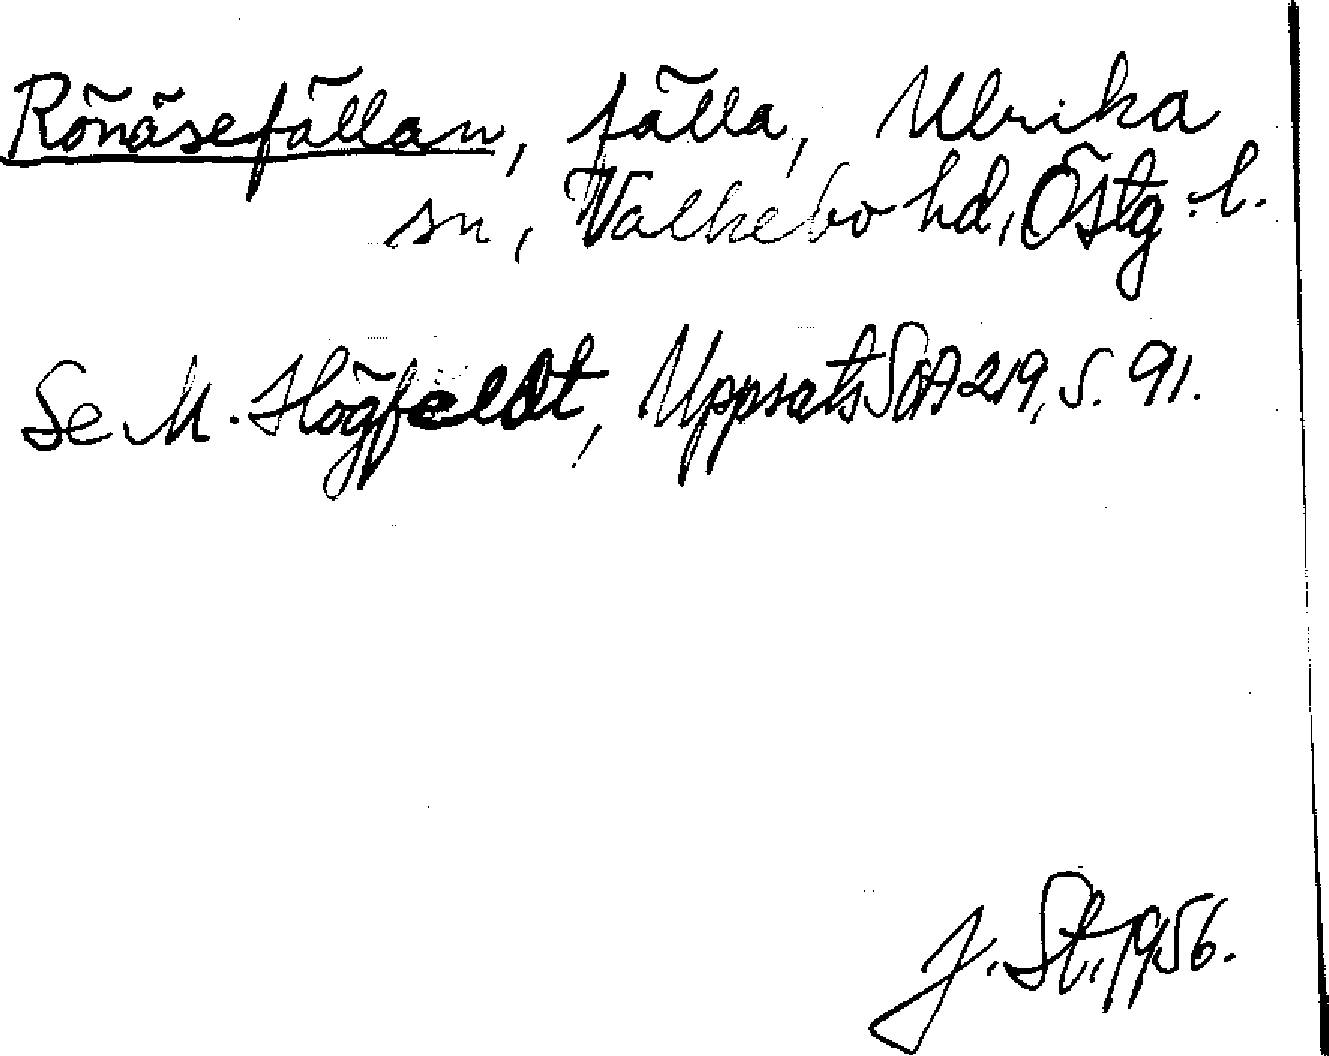 Rönäsefällan, fälla, Ulrika
sn, Valkebo hd, Östg. l.
Se M. Högfeldt, Uppsats SOA 219, s. 91.
J. St. 1956.